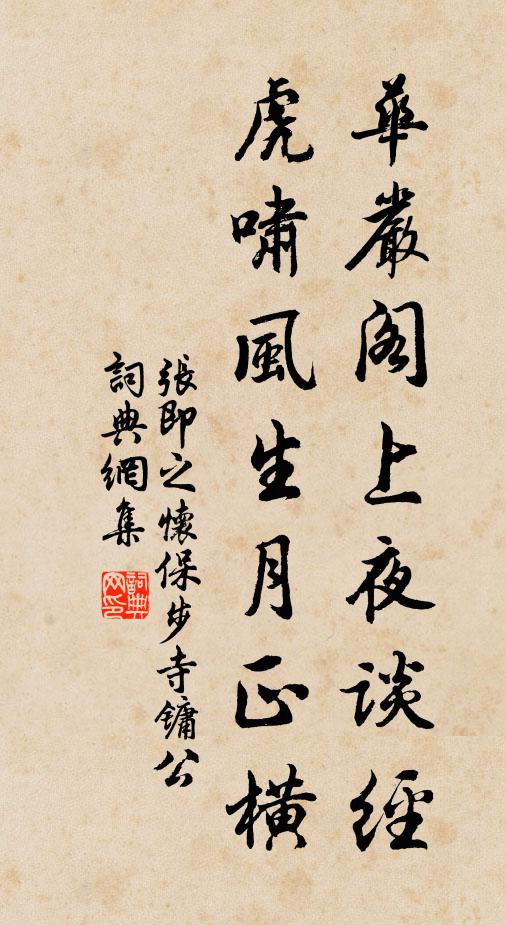 華嚴阁上夜談經
虎嘯風生月正橫
張即之懷保步寺鏞公
詞典網集
詞典网印